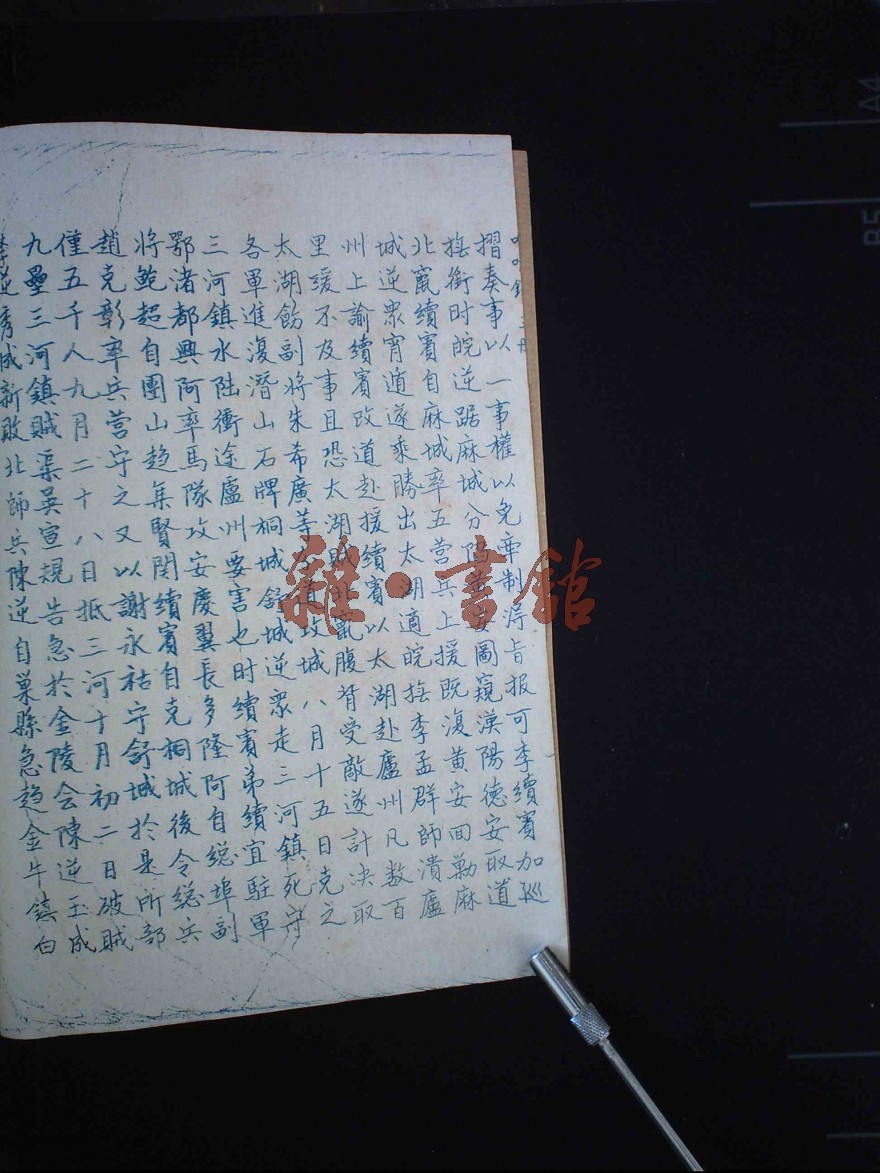 摺奏事以一事權以免牽制得旨报可李續賓加巡
撫銜时皖逆踞麻城分陷黄安圖窺漢陽德安取道
北竄續賓自麻城率五营兵上援既復黄安回勦麻
城逆眾宵遁遂乘勝出太湖適皖撫李孟群師潰廬
州上諭續賓改道赴援續賓以太湖赴廬州凡数百
里缓不及事且恐太湖賊北竄腹背受敵遂計决取
太湖飭副將朱希廣等分道攻城八月十五日克之
各軍進復潛山石牌桐城舒城逆眾走三河鎮死守
三河鎮水陆衝途廬州要害也时續賓弟續宜駐軍
鄂渚都興阿率馬隊攻安慶翼長多隆阿自總埠副
將鮑超自團山趋集賢関續賓自克桐城後令總兵
趙克彰率兵营守之又以謝永祜守舒城於是所部
僅五千人九月二十八日抵三河十月初二日破賊
九壘三河鎮賊渠吴宣規告急於金陵会陳逆玉成
李逆秀成新敗北師兵陳逆自巢縣急趋金牛鎮白
雜·書館